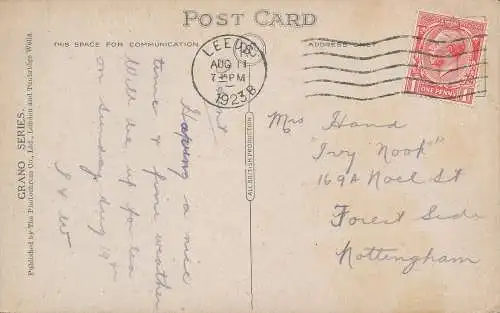 POST CARD
THIS SPACE FOR COMMUNICATION
ADDRESS ONLY
LEEDS
AUG 11
7 PM
1923
ONE PENNY
GRANO SERIES.
Published by The Photochrom Co., Ltd., London and Tunbridge Wells.
ALL BRITISH PRODUCTION
Having a nice
time & fine weather
Will be up to tea
on Sunday Aug 19th
Mrs Hand
"Ivy Nook"
169A Noel St
Forest Side
Nottingham